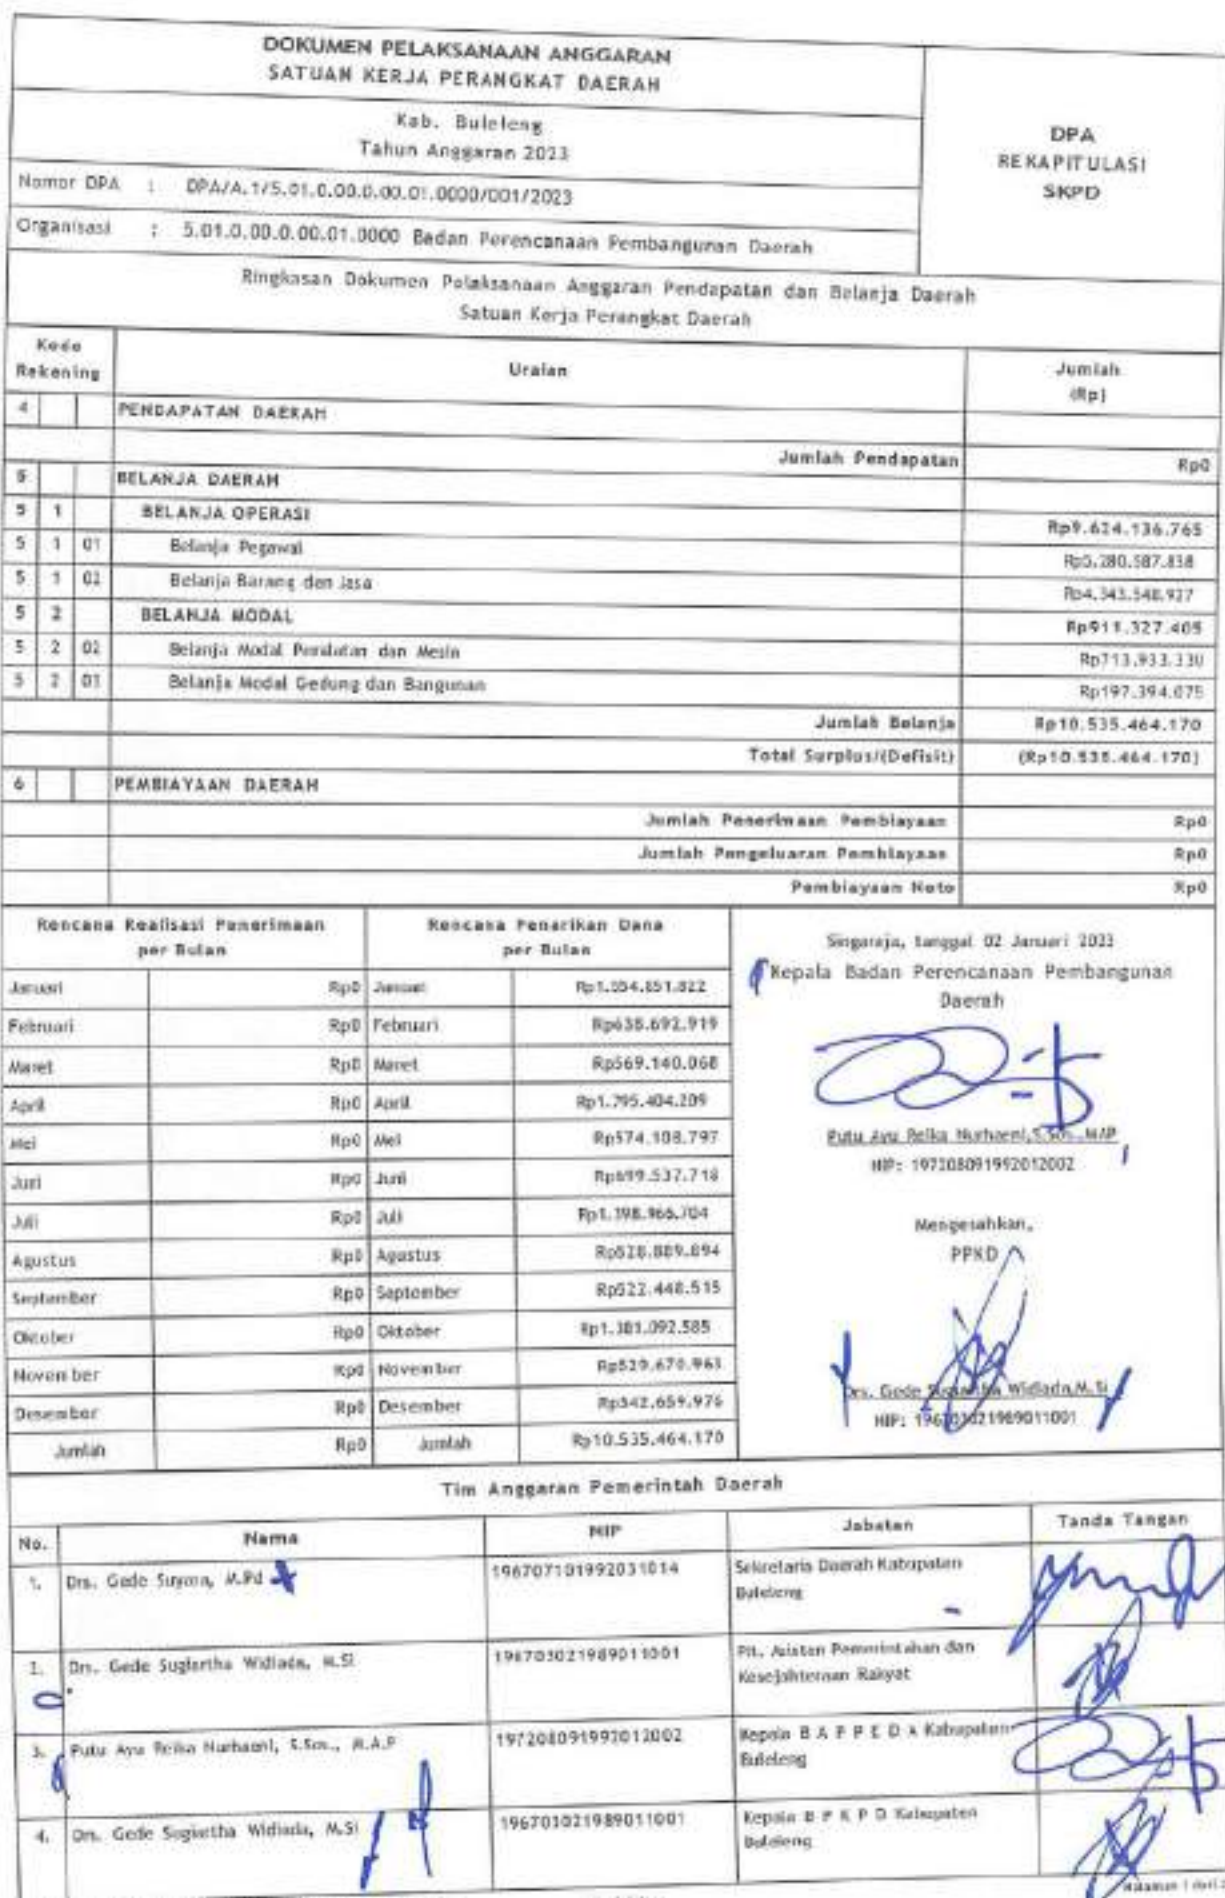 DOKUMEN PELAKSANAAN ANGGARAN
SATUAN KERJA PERANGKAT DAERAH
DPA
REKAPITULASI
SKPD
Kab. Buleleng
Tahun Anggaran 2023
Nomor DPA : DPA/A.1/5.01.0.00.0.00.01.0000/001/2023
Organisasi : 5.01.0.00.0.00.01.0000 Badan Perencanaan Pembangunan Daerah
Ringkasan Dokumen Pelaksanaan Anggaran Pendapatan dan Belanja Daerah
Satuan Kerja Perangkat Daerah
Kode Rekening Uraian Jumlah (Rp)
4 PENDAPATAN DAERAH
Jumlah Pendapatan Rp0
5 BELANJA DAERAH
5 1 BELANJA OPERASI Rp9.624.136.765
5 1 01 Belanja Pegawai Rp5.280.587.838
5 1 02 Belanja Barang dan Jasa Rp4.343.548.927
5 2 BELANJA MODAL Rp911.327.405
5 2 02 Belanja Modal Peralatan dan Mesin Rp713.933.330
5 2 03 Belanja Modal Gedung dan Bangunan Rp197.394.075
Jumlah Belanja Rp10.535.464.170
Total Surplus/(Defisit) (Rp10.535.464.170)
6 PEMBIAYAAN DAERAH
Jumlah Penerimaan Pembiayaan Rp0
Jumlah Pengeluaran Pembiayaan Rp0
Pembiayaan Neto Rp0
Rencana Realisasi Penerimaan per Bulan
Rencana Penarikan Dana per Bulan
Januari Rp0 Januari
Februari Rp0 Februari Rp638.692.919
Maret Rp0 Maret Rp569.140.068
April Rp0 April Rp1.795.404.209
Mei Rp0 Mei Rp574.108.797
Juni Rp0 Juni Rp699.537.718
Juli Rp0 Juli Rp1.398.966.704
Agustus Rp0 Agustus Rp528.889.894
September Rp0 September Rp522.448.515
Oktober Rp0 Oktober Rp1.381.092.585
November Rp0 November Rp529.670.963
Desember Rp0 Desember Rp342.659.976
Jumlah Rp0 Jumlah Rp10.535.464.170
Singaraja, tanggal 02 Januari 2023
Kepala Badan Perencanaan Pembangunan
Daerah
Putu Ayu Reika Nurhaeni,S.Sos.,MAP
NIP: 197208091992012002
Mengesahkan,
PPKD
Drs. Gede Sugiartha Widiada,M.Si
NIP: 196703021989011001
Tim Anggaran Pemerintah Daerah
No. Nama NIP Jabatan Tanda Tangan
1. Drs. Gede Suyasa, M.Pd 196707101992031014 Sekretaris Daerah Kabupaten
Buleleng
2. Drs. Gede Sugiartha Widiada, M.Si 196703021989011001 Plt. Asisten Pemerintahan dan
Kesejahteraan Rakyat
3. Putu Ayu Reika Nurhaeni, S.Sos., M.A.P 197208091992012002 Kepala B A P P E D A Kabupaten
Buleleng
4. Drs. Gede Sugiartha Widiada, M.Si 196703021989011001 Kepala B P K P D Kabupaten
Buleleng
Halaman 1 dari